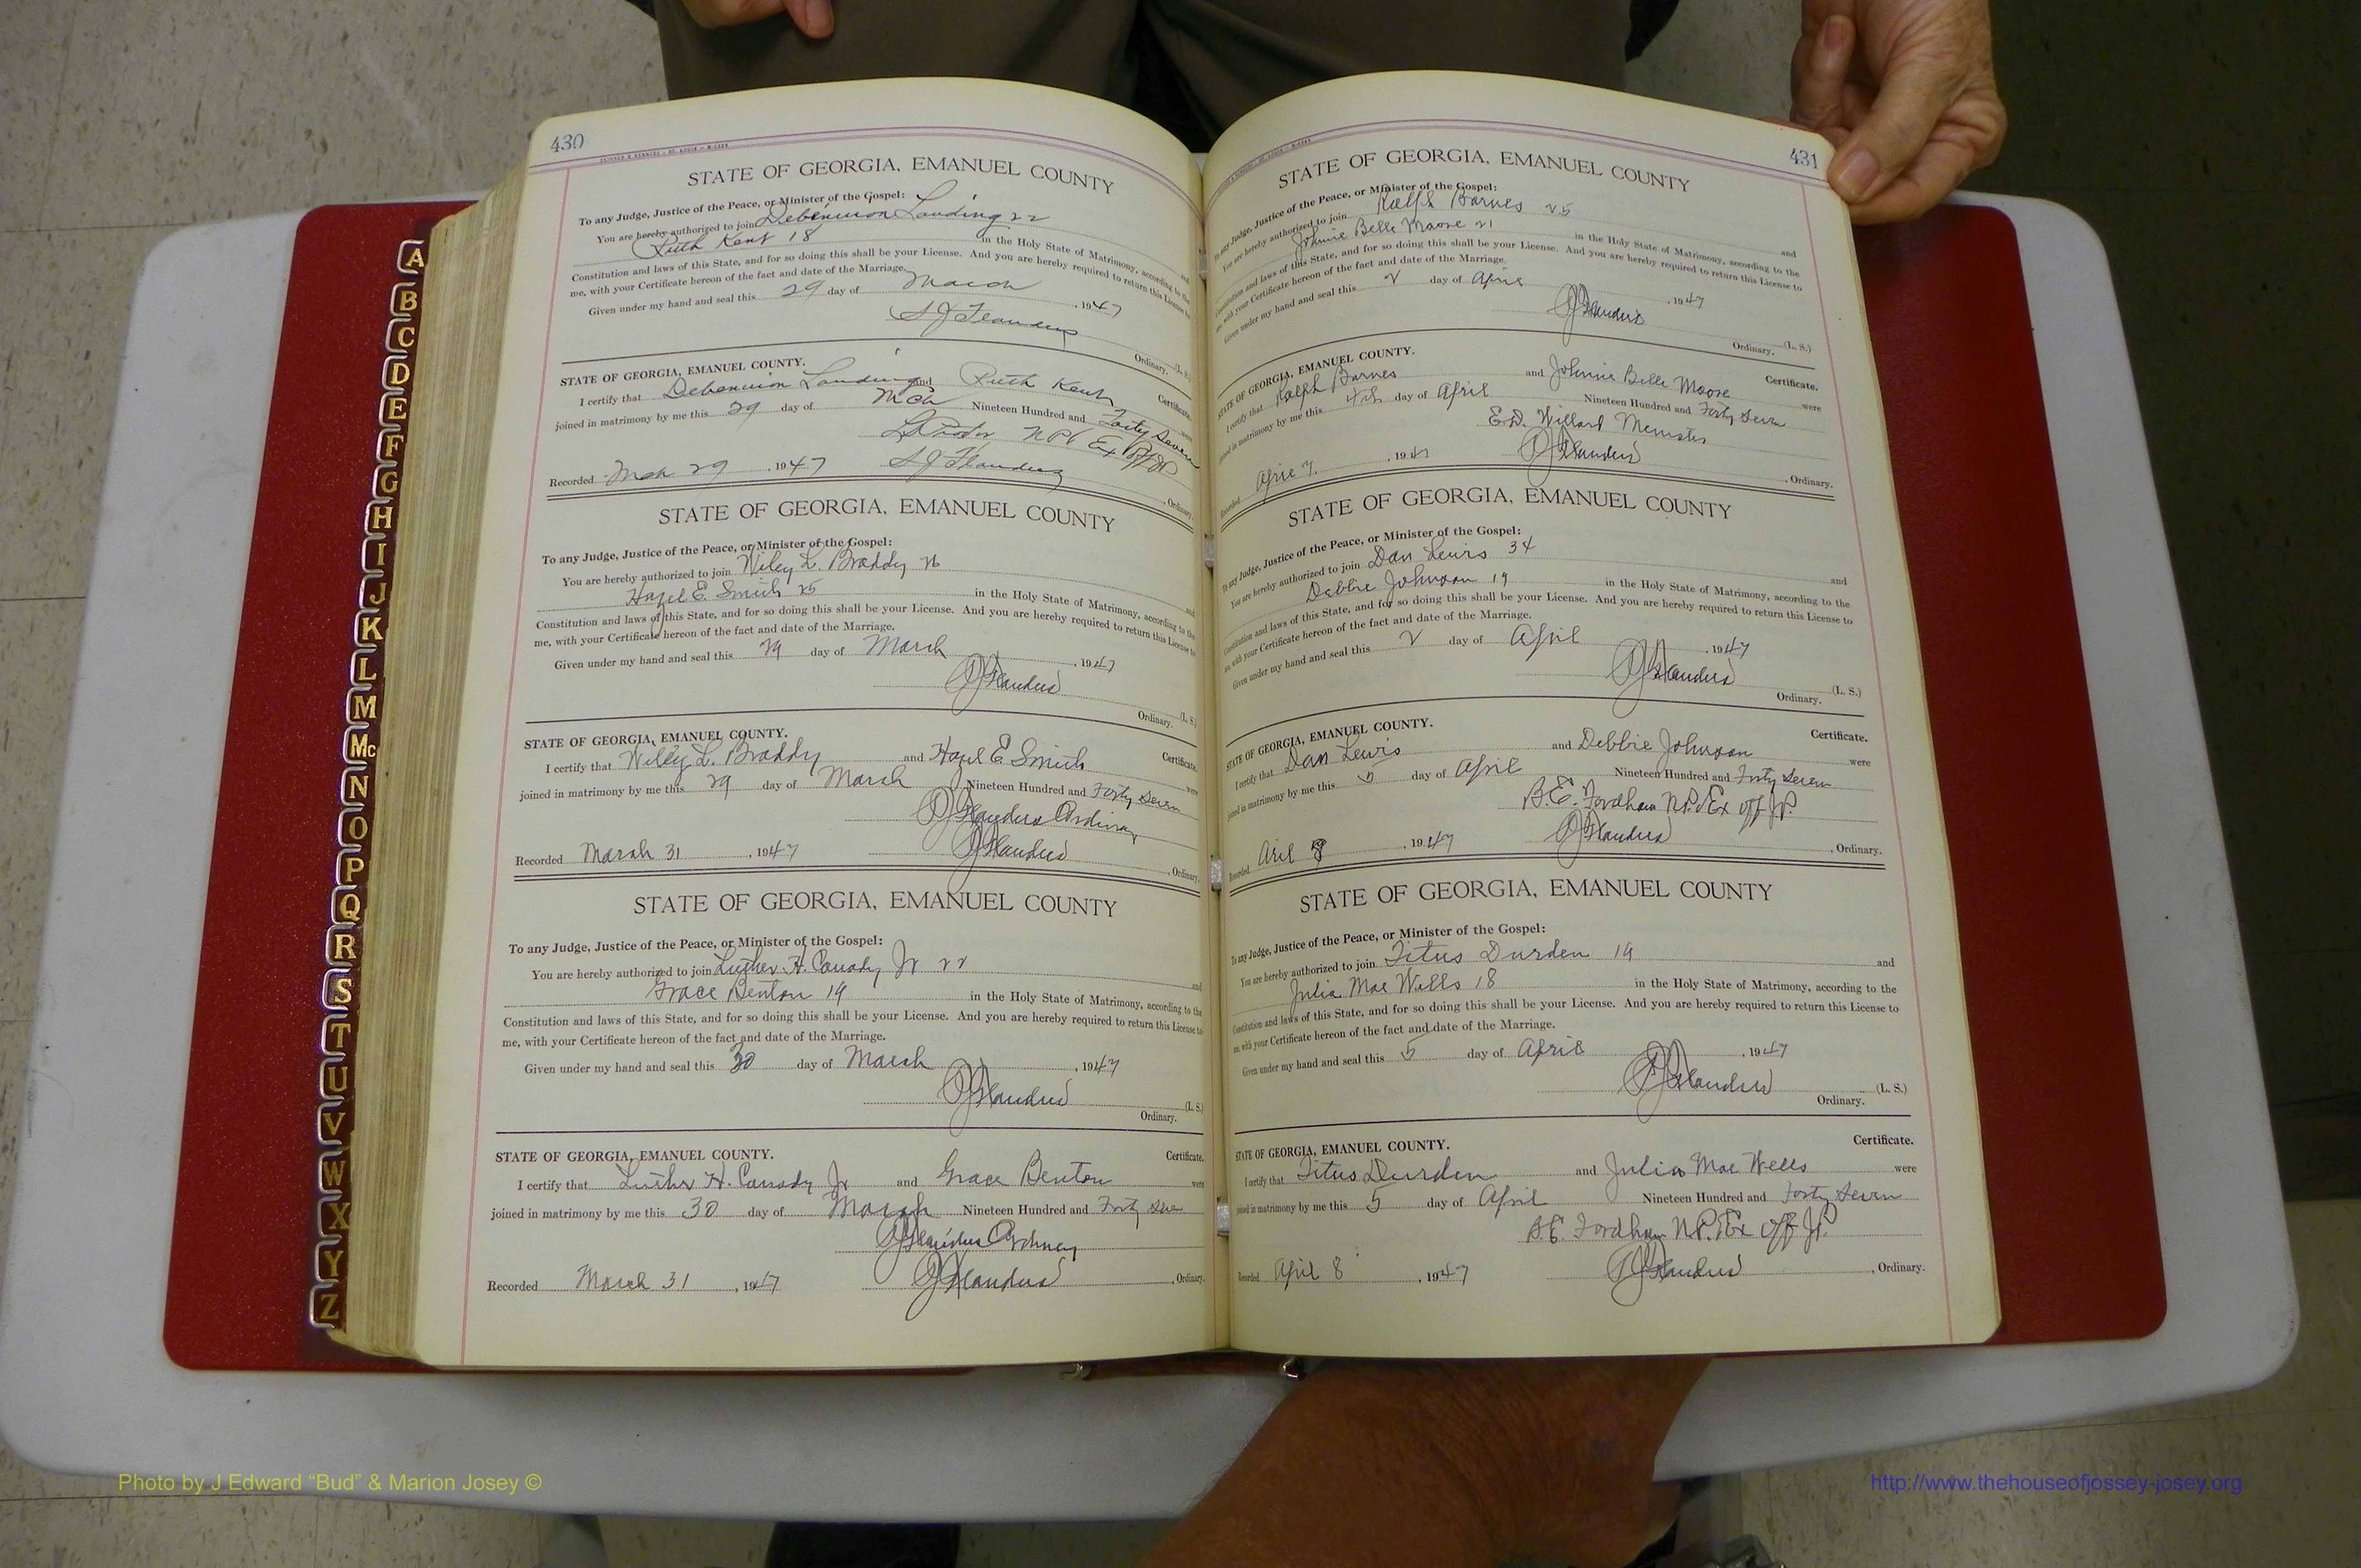 430
STATE OF GEORGIA, EMANUEL COUNTY
To any Judge, Justice of the Peace, or Minister of the Gospel:
You are hereby authorized to join Landing 22 and
Ruth Kent 18 in the Holy State of Matrimony, according to the
Constitution and laws of this State, and for so doing this shall be your License. And you are hereby required to return this License to
me, with your Certificate hereon of the fact and date of the Marriage.
Given under my hand and seal this 29 day of March, 1947
S J Flanders
Ordinary. (L. S.)
STATE OF GEORGIA, EMANUEL COUNTY. Certificate.
I certify that Landing and Ruth Kent were
joined in matrimony by me this 29 day of Mch Nineteen Hundred and Forty Seven
N P & Ex Off JP
Recorded Mch 29, 1947 S J Flanders, Ordinary.
STATE OF GEORGIA, EMANUEL COUNTY
To any Judge, Justice of the Peace, or Minister of the Gospel:
You are hereby authorized to join Wiley L. Braddy 26 and
Hazel E. Smith 25 in the Holy State of Matrimony, according to the
Constitution and laws of this State, and for so doing this shall be your License. And you are hereby required to return this License to
me, with your Certificate hereon of the fact and date of the Marriage.
Given under my hand and seal this 29 day of March, 1947
S J Flanders
Ordinary. (L. S.)
STATE OF GEORGIA, EMANUEL COUNTY. Certificate.
I certify that Willy L. Braddy and Hazel E Smith were
joined in matrimony by me this 29 day of March Nineteen Hundred and Forty Seven
S J Flanders Ordinary
Recorded March 31, 1947 S J Flanders, Ordinary.
STATE OF GEORGIA, EMANUEL COUNTY
To any Judge, Justice of the Peace, or Minister of the Gospel:
You are hereby authorized to join Luther H. Canady Jr 22 and
Grace Benton 19 in the Holy State of Matrimony, according to the
Constitution and laws of this State, and for so doing this shall be your License. And you are hereby required to return this License to
me, with your Certificate hereon of the fact and date of the Marriage.
Given under my hand and seal this 30 day of March, 1947
S J Flanders
Ordinary. (L. S.)
STATE OF GEORGIA, EMANUEL COUNTY. Certificate.
I certify that Luther H. Canady Jr and Grace Benton were
joined in matrimony by me this 30 day of March Nineteen Hundred and Forty Seven
S J Flanders Ordinary
Recorded March 31, 1947 S J Flanders, Ordinary.
431
STATE OF GEORGIA, EMANUEL COUNTY
To any Judge, Justice of the Peace, or Minister of the Gospel:
You are hereby authorized to join Ralph Barnes 25 and
Johnnie Belle Moore 21 in the Holy State of Matrimony, according to the
Constitution and laws of this State, and for so doing this shall be your License. And you are hereby required to return this License to
me, with your Certificate hereon of the fact and date of the Marriage.
Given under my hand and seal this 2 day of April, 1947
S J Flanders
Ordinary. (L. S.)
STATE OF GEORGIA, EMANUEL COUNTY. Certificate.
I certify that Ralph Barnes and Johnnie Belle Moore were
joined in matrimony by me this 4th day of April Nineteen Hundred and Forty Seven
E.D. Willard Minister
Recorded April 7, 1947 S J Flanders, Ordinary.
STATE OF GEORGIA, EMANUEL COUNTY
To any Judge, Justice of the Peace, or Minister of the Gospel:
You are hereby authorized to join Dan Lewis 34 and
Debbie Johnson 19 in the Holy State of Matrimony, according to the
Constitution and laws of this State, and for so doing this shall be your License. And you are hereby required to return this License to
me, with your Certificate hereon of the fact and date of the Marriage.
Given under my hand and seal this 2 day of April, 1947
S J Flanders
Ordinary. (L. S.)
STATE OF GEORGIA, EMANUEL COUNTY. Certificate.
I certify that Dan Lewis and Debbie Johnson were
joined in matrimony by me this 5 day of April Nineteen Hundred and Forty Seven
B.E. Fordham N.P. & Ex off J.P.
Recorded Aril 8, 1947 S J Flanders, Ordinary.
STATE OF GEORGIA, EMANUEL COUNTY
To any Judge, Justice of the Peace, or Minister of the Gospel:
You are hereby authorized to join Titus Durden 19 and
Julia Mae Wells 18 in the Holy State of Matrimony, according to the
Constitution and laws of this State, and for so doing this shall be your License. And you are hereby required to return this License to
me, with your Certificate hereon of the fact and date of the Marriage.
Given under my hand and seal this 5 day of April, 1947
S J Flanders
Ordinary. (L. S.)
STATE OF GEORGIA, EMANUEL COUNTY. Certificate.
I certify that Titus Durden and Julia Mae Wells were
joined in matrimony by me this 5 day of April Nineteen Hundred and Forty Seven
B.E. Fordham N.P. & Ex off J.P.
Recorded April 8, 1947 S J Flanders, Ordinary.
A
B
C
D
E
F
G
H
I
J
K
L
M
Mc
N
O
P
Q
R
S
T
U
V
W
X
Y
Z
Photo by J Edward “Bud” & Marion Josey ©
http://www.thehouseofjossey-josey.org